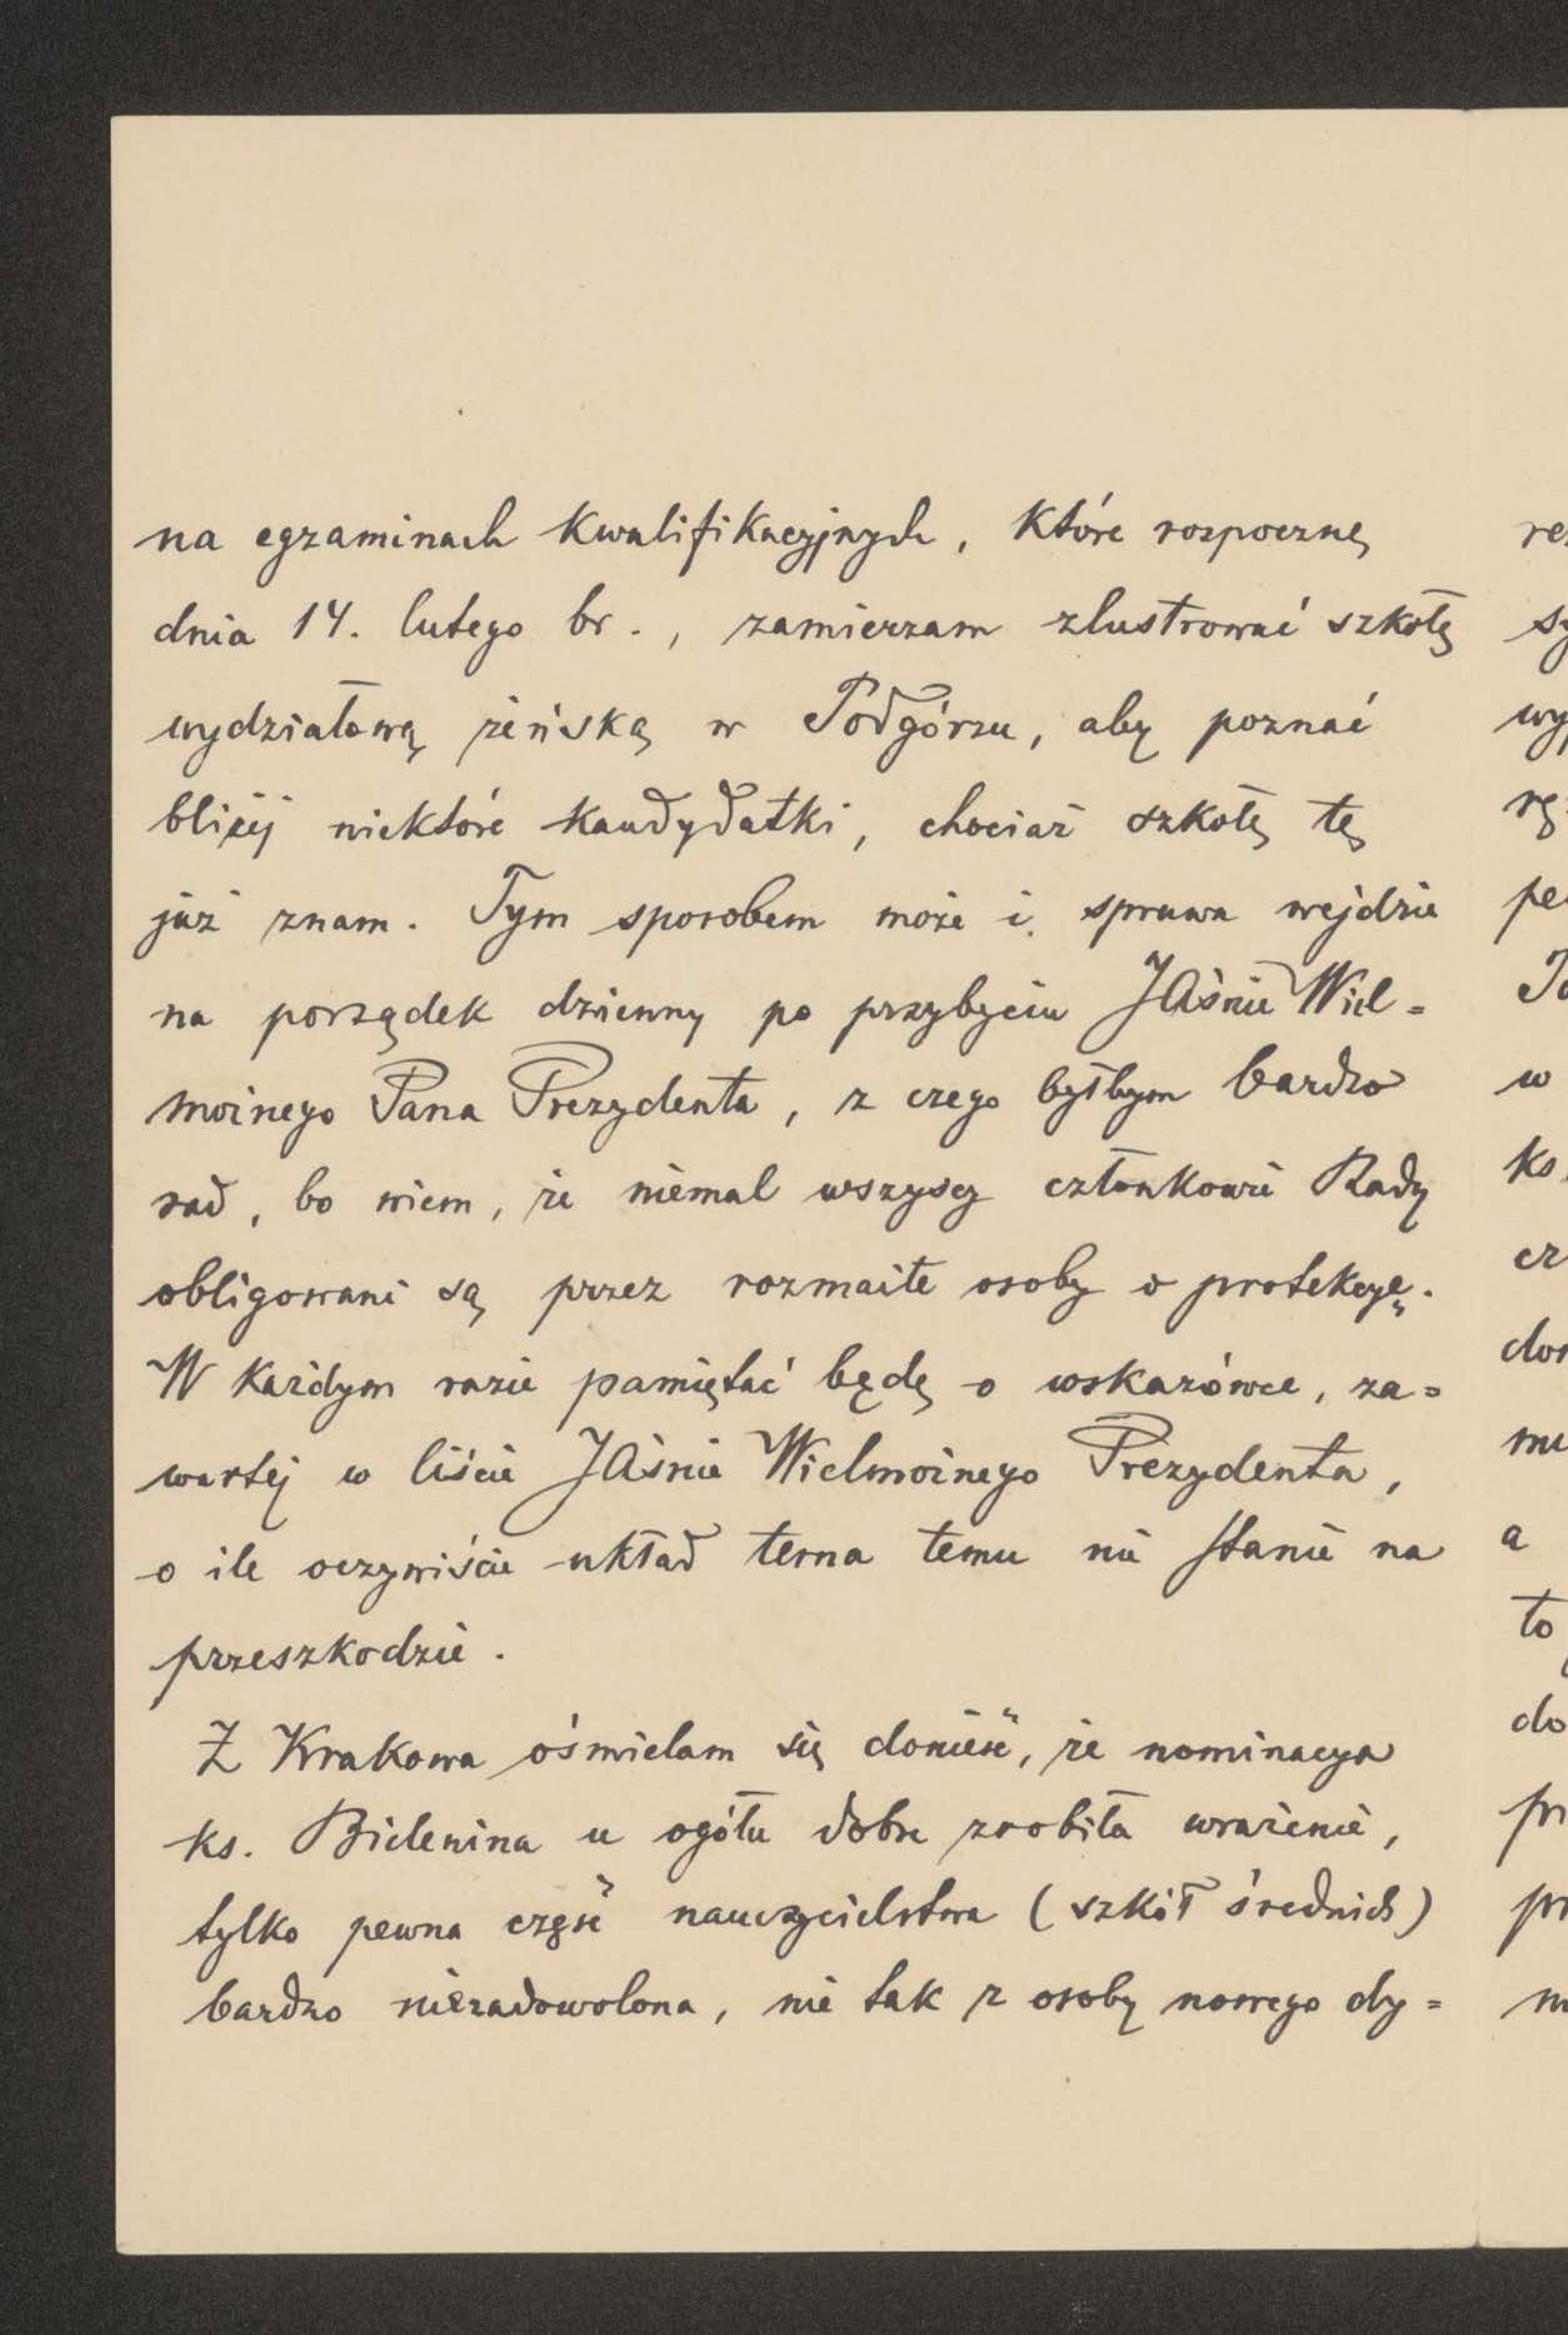 na egzaminach kwalifikacyjnych, które rozpoczną
dnia 14. lutego br., zamierzam zlustrować szkołę
wydziałową żeńską w Podgórzu, aby poznać
bliżej niektóre kandydatki, chociaż szkołę tę
już znam. Tym sposobem może i sprawa wejdzie
na porządek dzienny po przybyciu JAśnie Wiel=
możnego Pana Prezydenta, z czego byłbym bardzo
rad, bo wiem, że niemal wszyscy członkowie Rady
obligowani są przez rozmaite osoby o protekcyę.
W każdym razie pamiętać będę o wskazówce, za=
wartej w liście JAśnie Wielmożnego Prezydenta,
o ile oczywiście układ terna temu nie stanie na
przeszkodzie.
Z Krakowa ośmielam się donieść, że nominacya
ks. Bielenina u ogółu dobre zrobiła wrażenie,
tylko pewna część nauczycielstwa (szkół średnich)
bardzo niezadowolona, nie tak z osoby nowego dy=